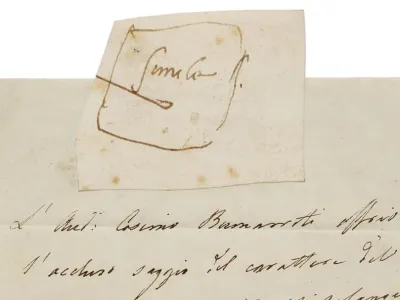 Simile
L' Aud.: Cosimo Buonarroti offriva
l'accluso saggio del carattere del